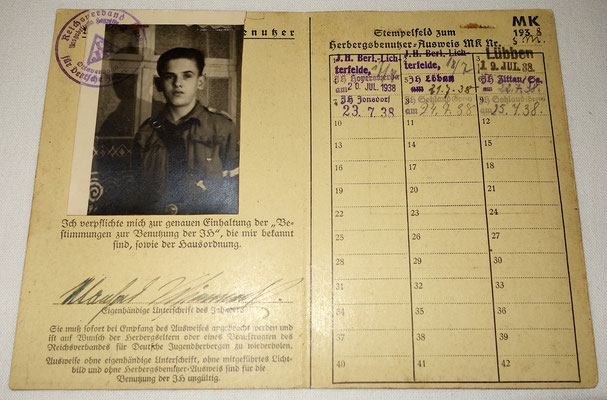 Reichsverband
für Deutsche
enutzer
Ich verpflichte mich zur genauen Einhaltung der „Be-
stimmungen zur Benutzung der JH“, die mir bekannt
sind, sowie der Hausordnung.
Manfred
Eigenhändige Unterschrift des Inhabers
Sie muß sofort bei Empfang des Ausweises angebracht werden und
ist auf Wunsch der Herbergseltern oder eines Beauftragten des
Reichsverbandes für Deutsche Jugendherbergen zu wiederholen.
Ausweise ohne eigenhändige Unterschrift, ohne mitgeführtes Licht-
bild und ohne Herbergsbenutzer-Ausweis sind für die
Benutzung der JH ungültig.
MK
Stempelfeld zum 1938
Herbergsbenutzer-Ausweis MK Nr.
J.H. Berl.-Lich
terfelde,
J.H. Berl.-Lich
terfelde,
Lübben
19. JUL. 38.
am 20. JUL 1938
JH Löbau
am 21.7.38
JH Zittau/Sa.
JH Jonsdorf
23.7.38
24.7.38
25.7.38.
10 11 12
13 14 15
16 17 18
19 20 21
22 23 24
25 26 27
28 29 30
31 32 33
34 35 36
37 38 39
40 41 42